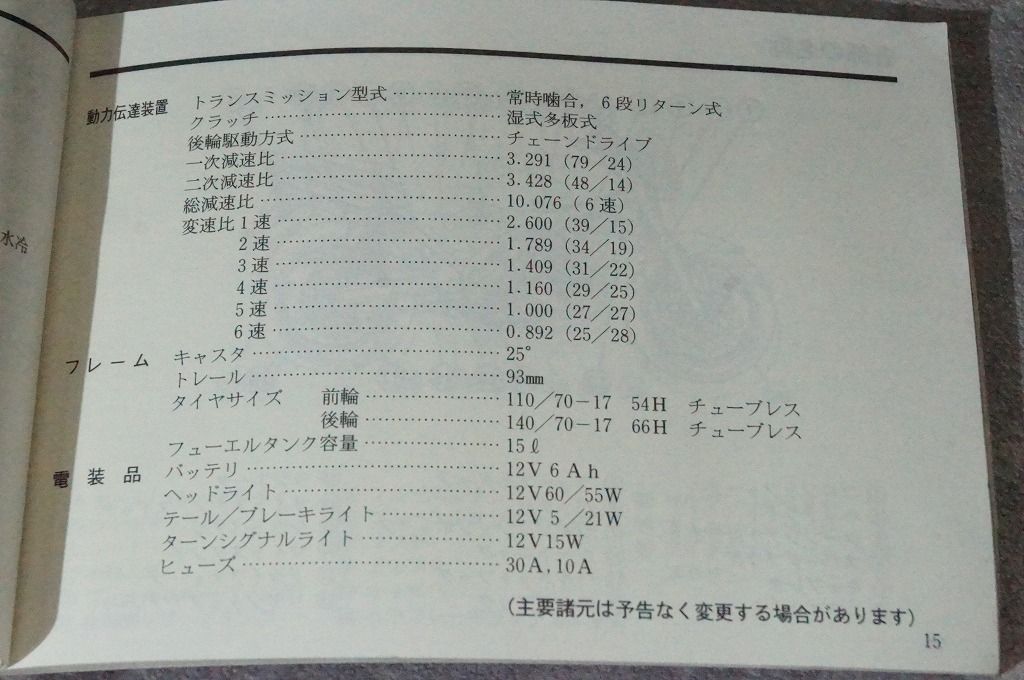 動力伝達装置 トランスミッション型式………………常時噛合，6段リターン式
クラッチ………………湿式多板式
後輪駆動方式………………チェーンドライブ
一次減速比………………3.291（79／24）
二次減速比………………3.428（48／14）
総減速比………………10.076（6速）
変速比1速………………2.600（39／15）
2速………………1.789（34／19）
3速………………1.409（31／22）
4速………………1.160（29／25）
5速………………1.000（27／27）
6速………………0.892（25／28）
フレーム キャスタ………………25°
トレール………………93mm
タイヤサイズ 前輪………………110／70－17 54H チューブレス
後輪………………140／70－17 66H チューブレス
フューエルタンク容量………………15ℓ
電装品 バッテリ………………12V6Ah
ヘッドライト………………12V60／55W
テール／ブレーキライト………………12V5／21W
ターンシグナルライト………………12V15W
ヒューズ………………30A,10A
（主要諸元は予告なく変更する場合があります）
15
水冷